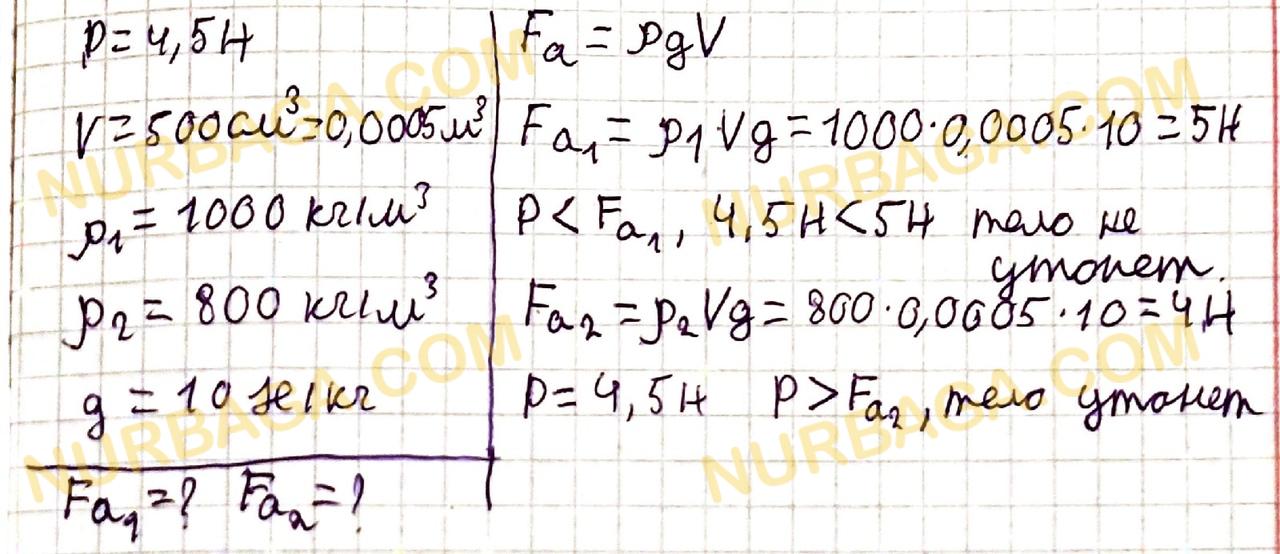 P = 4,5H
V = 500см³ = 0,0005м³
ρ₁ = 1000 кг/м³
ρ₂ = 800 кг/м³
g = 10 Н/кг
Fa₁ = ? Fa₂ = ?
Fa = ρgV
Fa₁ = ρ₁Vg = 1000·0,0005·10 = 5H
P < Fa₁, 4,5H < 5H тело не
утонет.
Fa₂ = ρ₂Vg = 800·0,0005·10 = 4H
P = 4,5H P > Fa₂, тело утонет
NURBAGA.COM
NURBAGA.COM
NURBAGA.COM
NURBAGA.COM